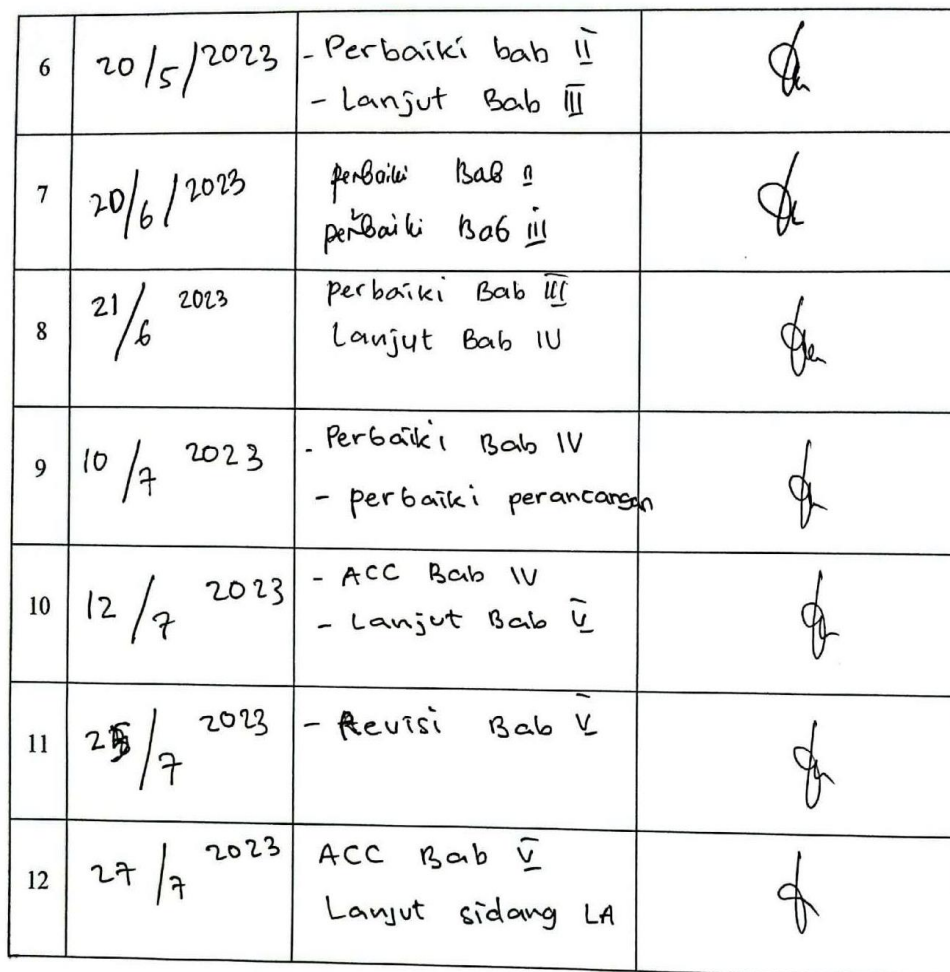 6 20/5/2023 - Perbaiki bab II
- Lanjut Bab III
7 20/6/2023 perbaiki Bab II
perbaiki Bab III
8 21/6 2023 perbaiki Bab III
Lanjut Bab IV
9 10/7 2023 - Perbaiki Bab IV
- perbaiki perancangan
10 12/7 2023 - ACC Bab IV
- Lanjut Bab V
11 /7 2023 - Revisi Bab V
12 27/7 2023 ACC Bab V
Lanjut sidang LA